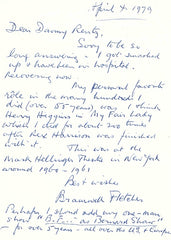 April 4 1979
Dear Danny Reitz,
Sorry to be so
long answering - I got smashed
up & have been in hospital.
Recovering now.
My personal favorite
role in the many hundred I
did (over 55 years) was I think
Henry Higgins in My Fair Lady
which I did for about two times
after Rex Harrison was finished
with it. This was at the
Mark Hellinger Theatre in New York
around 1960-1961
Best wishes
Bramwell Fletcher
Perhaps I should add my one-man,
show as Bernard Shaw
for over 5 years - all over the U.S. &